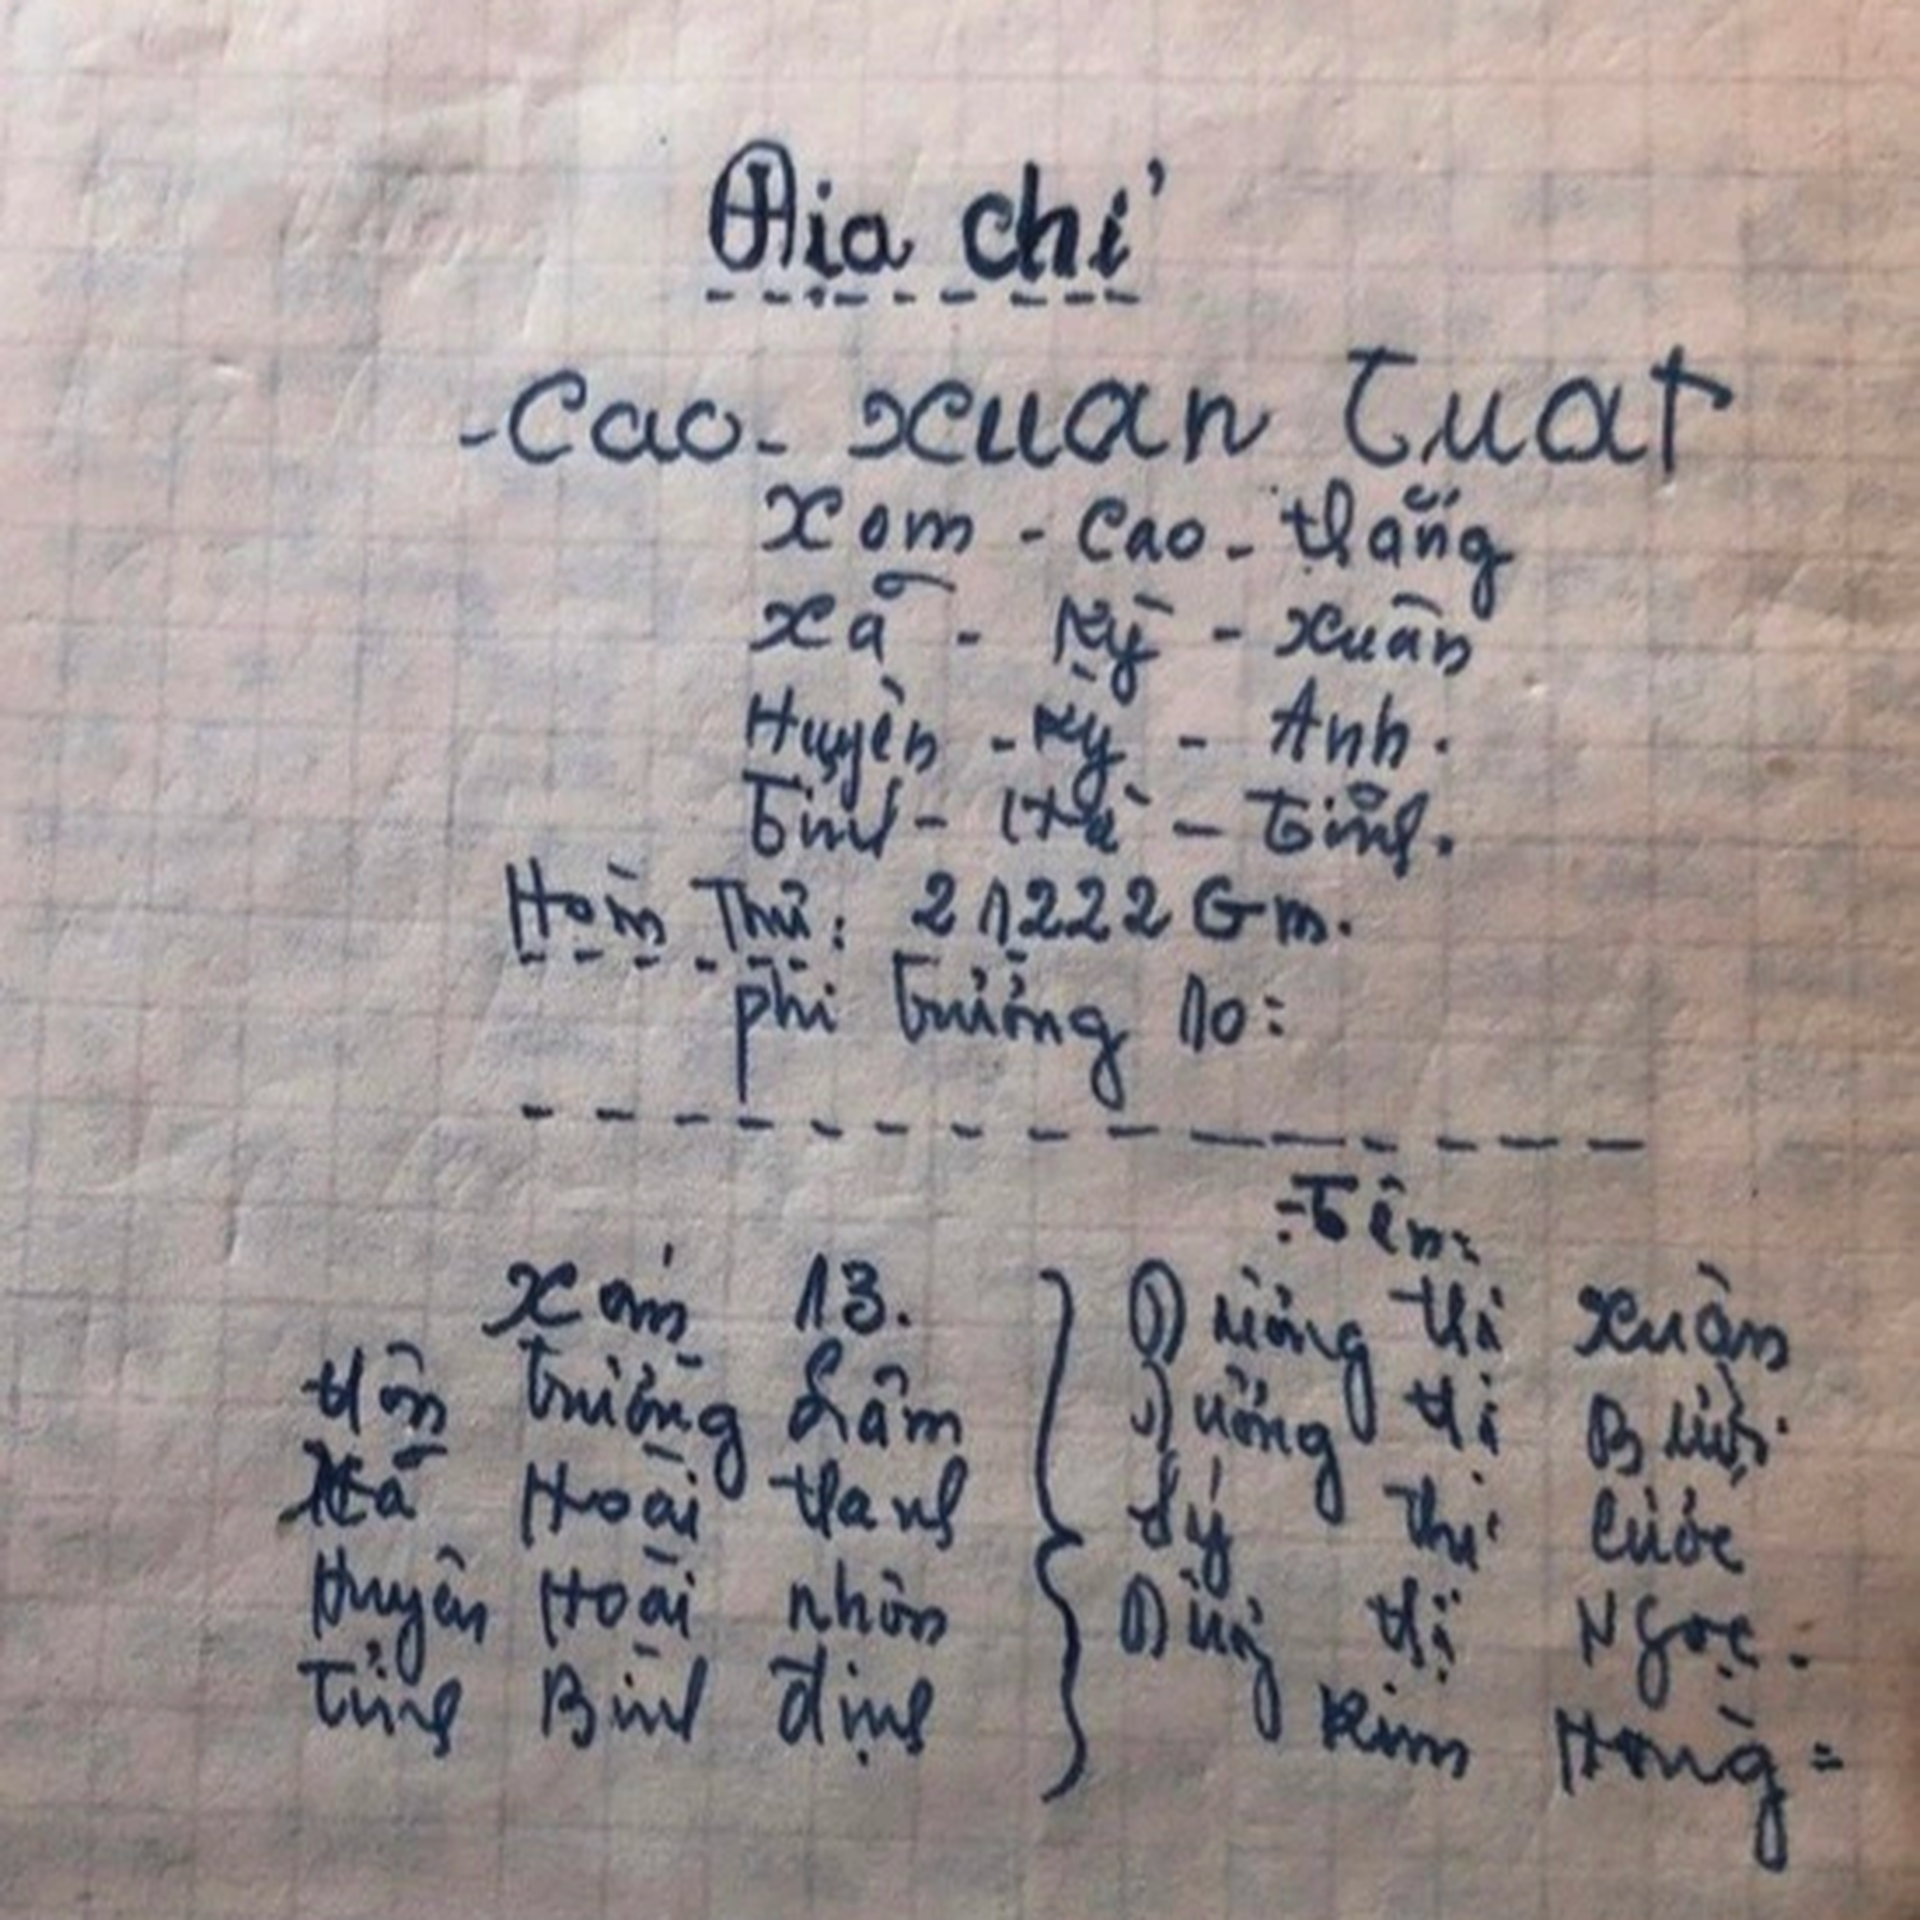 Địa chỉ
-Cao- Xuan Tuat
Xom - Cao - thắng
Xã - Kỳ - Xuân
Huyện - Kỳ - Anh.
Tỉnh - Hà - Tĩnh.
Hòm Thư: 21222 Gm.
phi trường 10:
Tên:
Xóm 13.
thôn trường Lâm
Xã Hoài thanh
Huyện Hoài nhơn
Tỉnh Bình định
Dương thị Xuân
Dương thị Bưởi
Lý thị Cước
Dung thị Ngọc.
Kim Hồng =